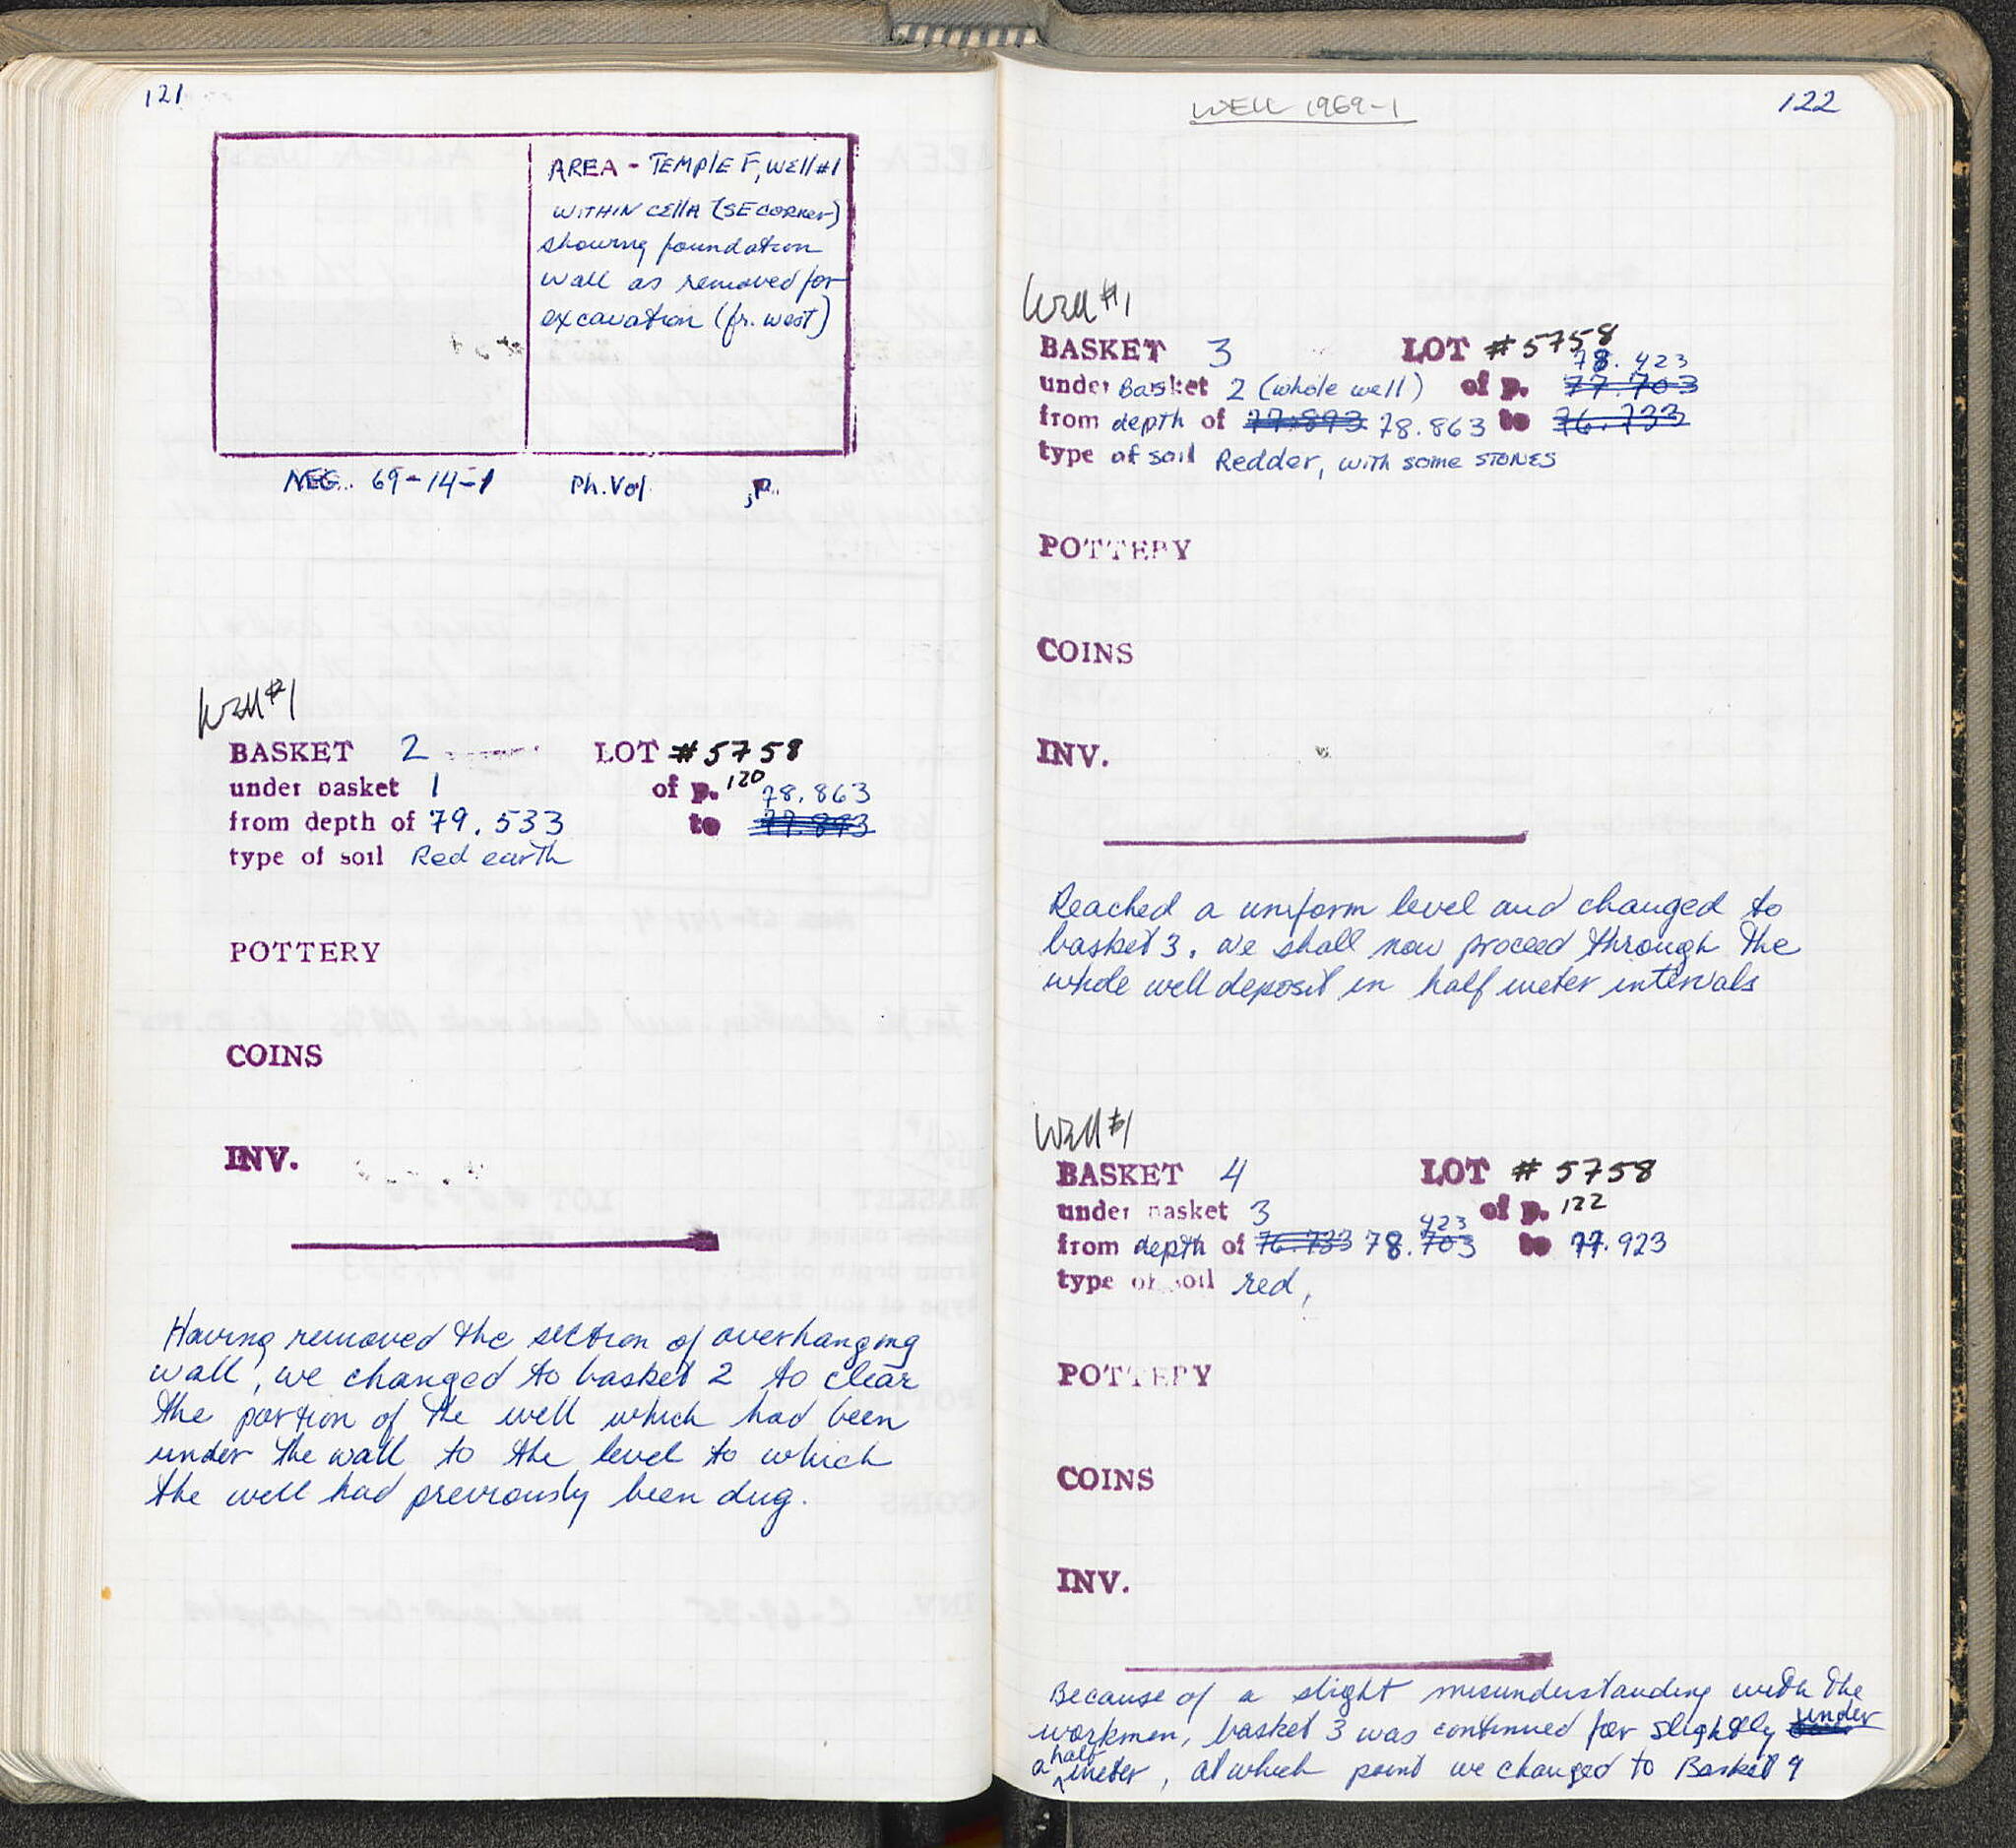 121
AREA - TEMPLE F, WEll #1
WITHIN CEllA (SE CORNER)
showing foundation
wall as removed for
excavation (fr. west)
NEG. 69-14-1 Ph.Vol. , p.
Well #1
BASKET 2 LOT #5758
under basket 1 of p. 120
78.863
from depth of 79.533 to 77.893
type of soil Red earth
POTTERY
COINS
INV.
Having removed the section of overhanging
wall, we changed to basket 2 to clear
the portion of the well which had been
under the wall to the level to which
the well had previously been dug.
WELL 1969-1
122
Well #1
BASKET 3 LOT #5758
78.423
under Basket 2 (whole well) of p. 77.703
from depth of 77.893 78.863 to 76.733
type of soil Redder, with some STONES
POTTERY
COINS
INV.
Reached a uniform level and changed to
basket 3. We shall now proceed through the
whole well deposit in half meter intervals
Well #1
BASKET 4 LOT #5758
under basket 3 of p. 122
423
from depth of 76.733 78.703 to 77.923
type of soil red,
POTTERY
COINS
INV.
Because of a slight misunderstanding with the
workmen, basket 3 was continued for slightly under
a half meter, at which point we changed to Basket 4